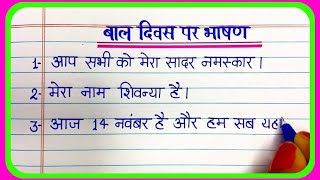 बाल दिवस पर भाषण
1- आप सभी को मेरा सादर नमस्कार ।
2- मेरा नाम शिवन्या है ।
3- आज 14 नवंबर है और हम सब यहा